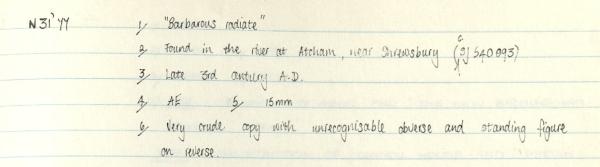 N31'77 1/ "Barbarous radiate"
2/ Found in the river at Atcham, near Shrewsbury (c. SJ 540093)
3/ Late 3rd century A.D.
4/ AE 5/ 15mm
6/ Very crude copy with unrecognisable obverse and standing figure
on reverse.